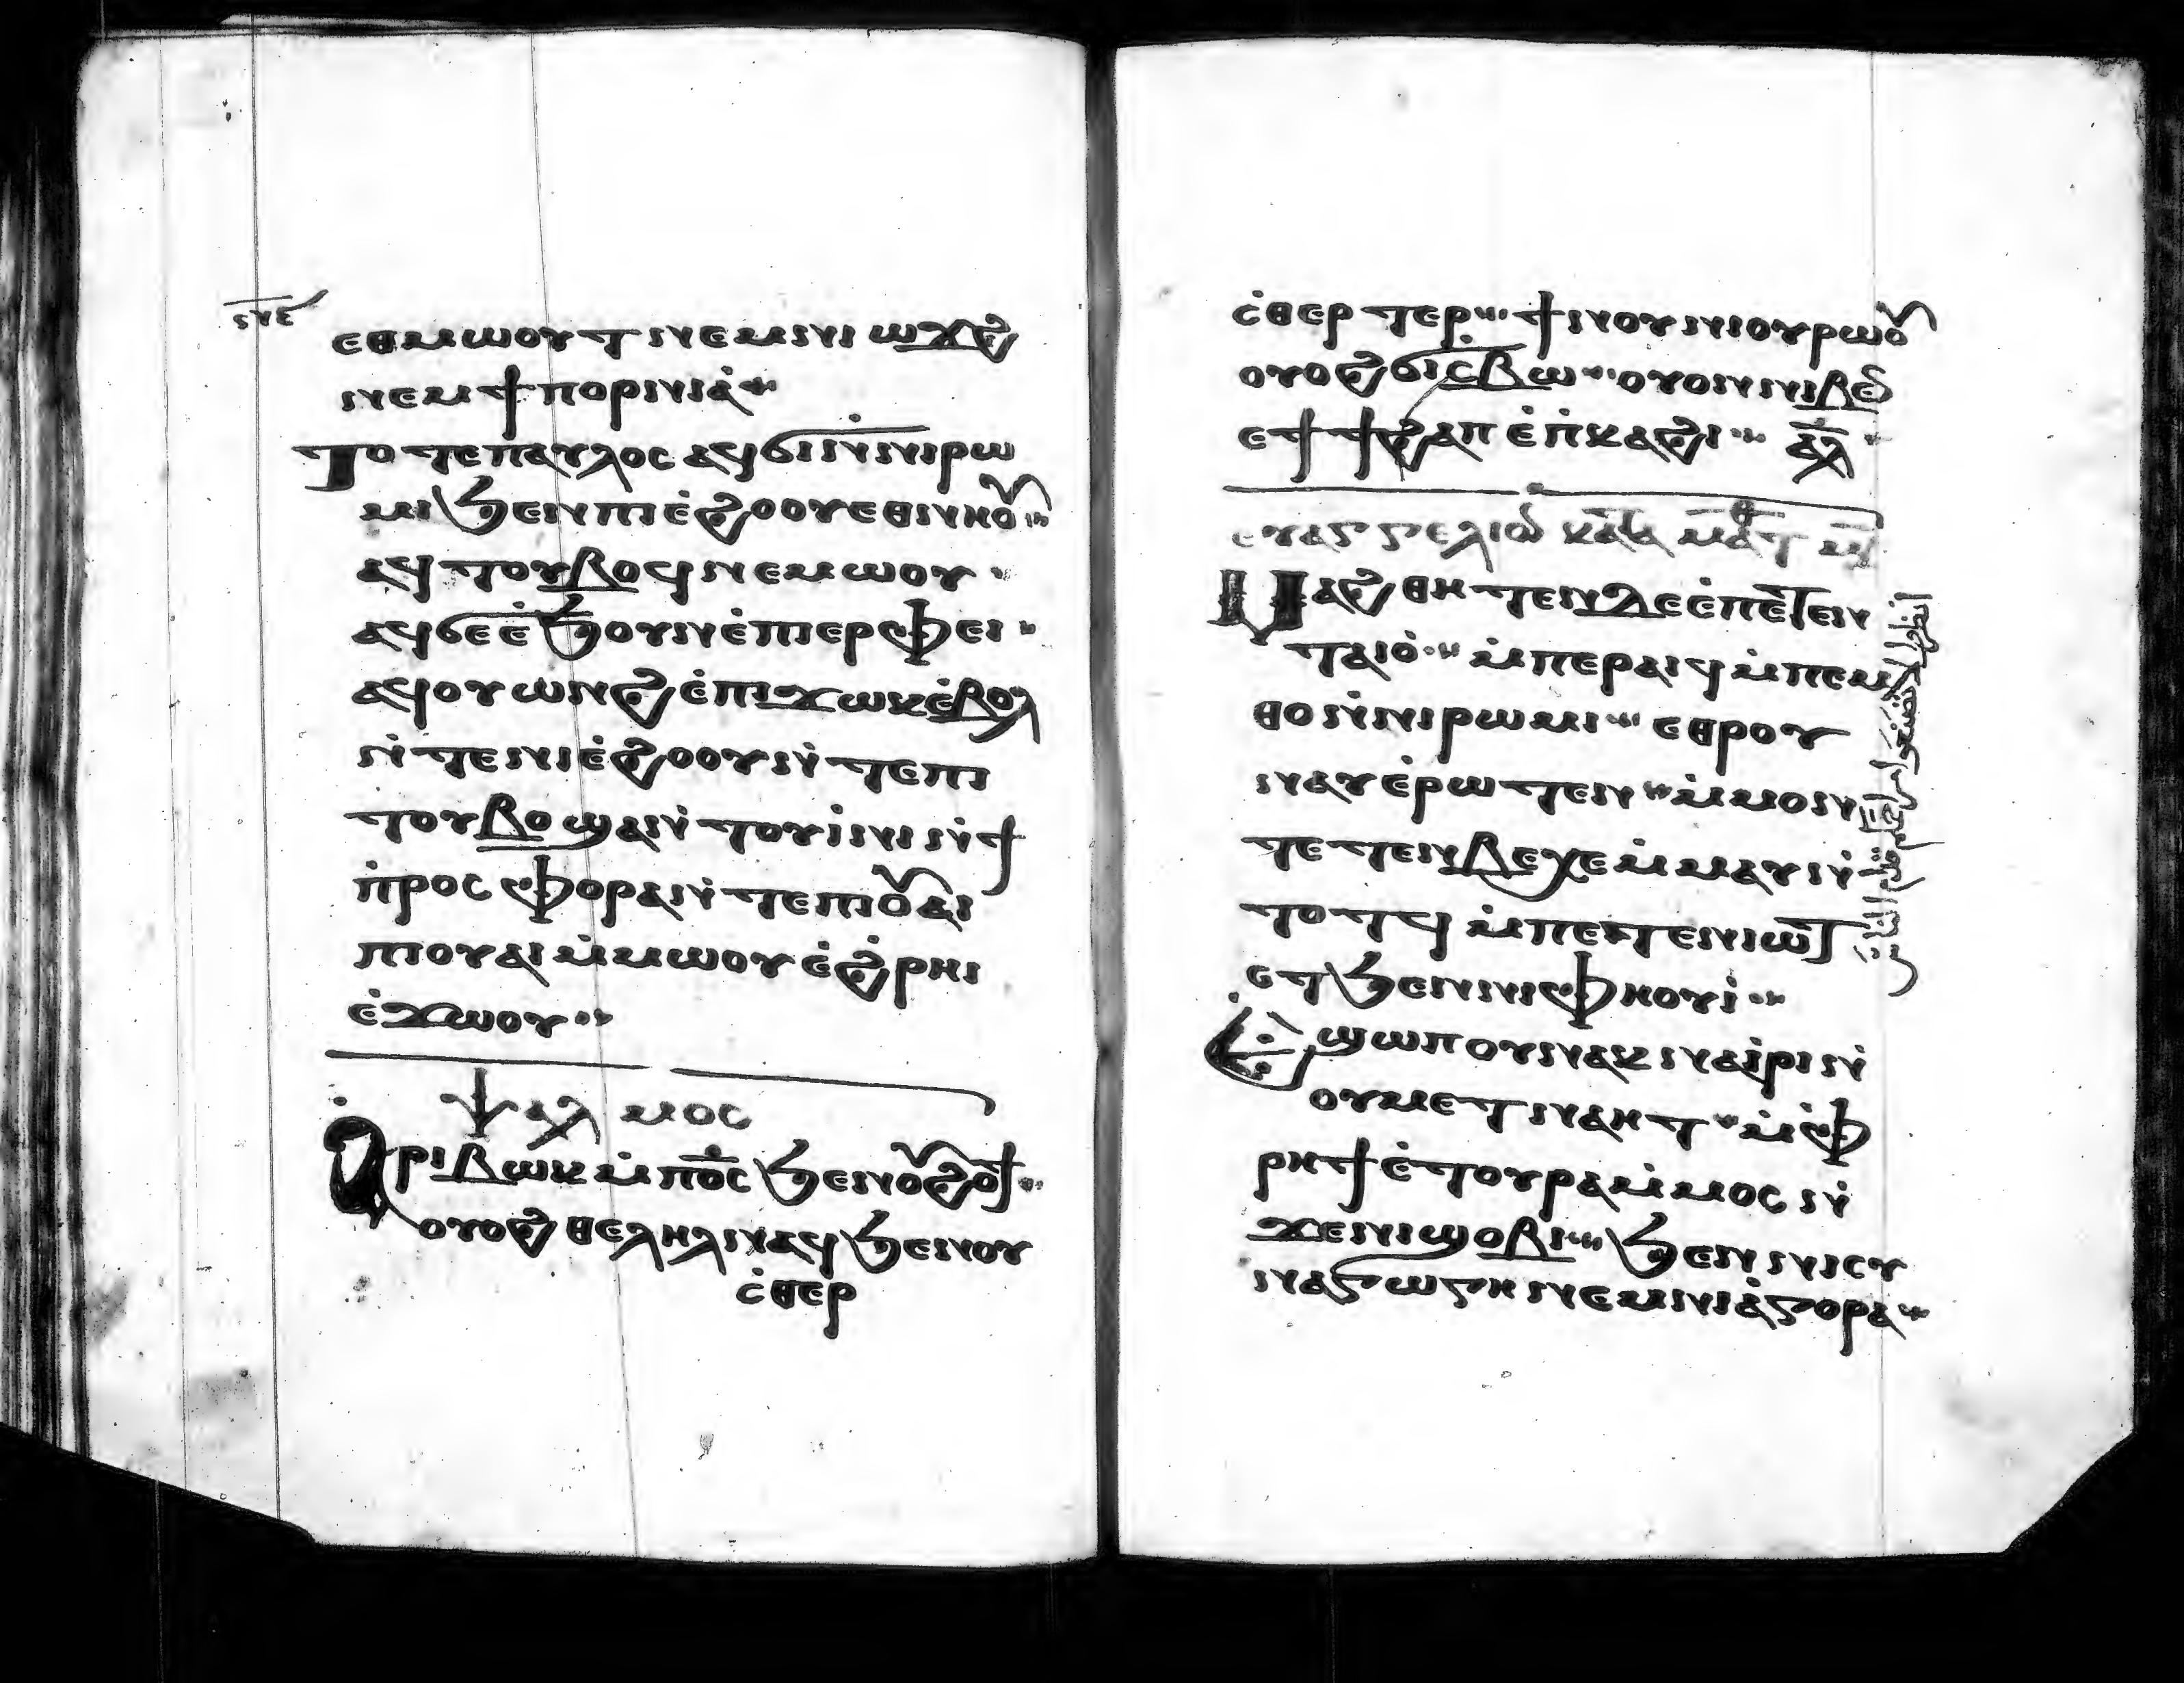 ⲥⲛⲉ
ⲉⲑⲙⲱⲟⲩⲧ ⲛⲉⲙ ⲛⲓⲱϫϩ
ⲛⲉⲙ ϯⲡⲟⲣⲛⲓⲁ̀
Ⲧⲟⲧⲉ ⲡⲁⲩⲗⲟⲥ ⲁϥϭⲓ ⲛ̀ⲛⲓⲣⲱ
ⲙⲓ ϧⲉⲛ ⲡⲓⲉ̀ϩⲟⲟⲩ ⲉⲑⲛⲏⲟⲩ
ⲁϥⲧⲟⲩⲃⲟϥ ⲛⲉⲙⲱⲟⲩ
ⲁϥϭⲉ ⲉ̀ϧⲟⲩⲛ ⲉ̀ⲡⲓⲉⲣⲫⲉⲓ
ⲁϥⲟⲩⲱⲛϩ ⲉ̀ⲡⲓϫⲱⲕ ⲉ̀ⲃⲟⲗ
ⲛ̀ⲧⲉ ⲛⲓⲉ̀ϩⲟⲟⲩ ⲛ̀ⲧⲉ ⲡⲓ
ⲧⲟⲩⲃⲟ ϣⲁⲛ̀ⲧⲟⲩⲓ̀ⲛⲓ ⲛ̀ϯ
ⲡ̀ⲣⲟⲥⲫⲟⲣⲁ ⲛ̀ⲧⲉ ⲡⲓⲟⲩⲁⲓ
ⲡⲓⲟⲩⲁⲓ ⲙ̀ⲙⲱⲟⲩ ⲉ̀ϩ̀ⲣⲏⲓ
ⲉ̀ϫⲱⲟⲩ
ⲯⲁⲗⲙⲟⲥ
Ⲁⲣⲓⲃⲱⲕ ⲙ̀ⲡⲟ̅ⲥ̅ ϧⲉⲛ ⲟⲩϩⲟϯ
ⲟⲩⲟϩ ⲑⲉⲗⲏⲗ ⲛⲁϥ ϧⲉⲛ ⲟⲩ
ⲥ̀ⲑⲉⲣ
ⲥ̀ⲑⲉⲣⲧⲉⲣ ϯⲛⲟⲩ ⲛⲓⲟⲩⲣⲱⲟⲩ
ⲟⲩⲟϩ ϭⲓⲥ̀ⲃⲱ ⲟⲩⲟⲛ ⲛⲓⲃⲉⲛ
ⲉⲧϯϩⲁⲡ ⲉ̀ⲡ̀ⲕⲁϩⲓ ⲁ̅ⲗ̅
ⲉⲩⲁⲅⲅⲉⲗⲓⲟⲛ ⲕⲁⲧⲁ ⲙⲁⲧⲑ
Ⲙⲁϩⲑⲏⲧⲉⲛ ⲇⲉ ⲉ̀ⲡⲉⲧⲉⲛ
ⲧⲁⲓⲟ̀ ⲙ̀ⲡⲉⲣⲁⲓϥ ⲙ̀ⲡⲉⲙ
ⲑⲟ ⲛ̀ⲛⲓⲣⲱⲙⲓ ⲉⲑⲣⲟⲩ
ⲛⲁⲩ ⲉ̀ⲣⲱⲧⲉⲛ ⲙ̀ⲙⲟⲛ
ⲧⲉⲧⲉⲛ ⲃⲉⲭⲉ ⲙ̀ⲙⲁⲩ ⲛ̀
ⲧⲟⲧϥ ⲙ̀ⲡⲉⲧⲉⲛⲓⲱⲧ
ⲉⲧϧⲉⲛ ⲛⲓⲫⲏⲟⲩⲓ̀
Ⲉϣⲱⲡ ⲟⲩⲛ ⲁⲕⲛⲁⲓ̀ⲣⲓ ⲛ̀
ⲟⲩⲙⲉⲧⲛⲁⲏⲧ ⲙ̀ⲫ̀
ⲣⲏϯ ⲉ̀ⲧⲟⲩⲣⲁ ⲙ̀ⲙⲟⲥ ⲛ̀
ϫⲉ ⲛⲓϣⲟⲃⲓ ϧⲉⲛ ⲛⲓⲥⲩ
ⲛⲁⲅⲱⲅⲏ ⲛⲉⲙ ⲛⲓⲁ̀ⲅⲟⲣⲁ